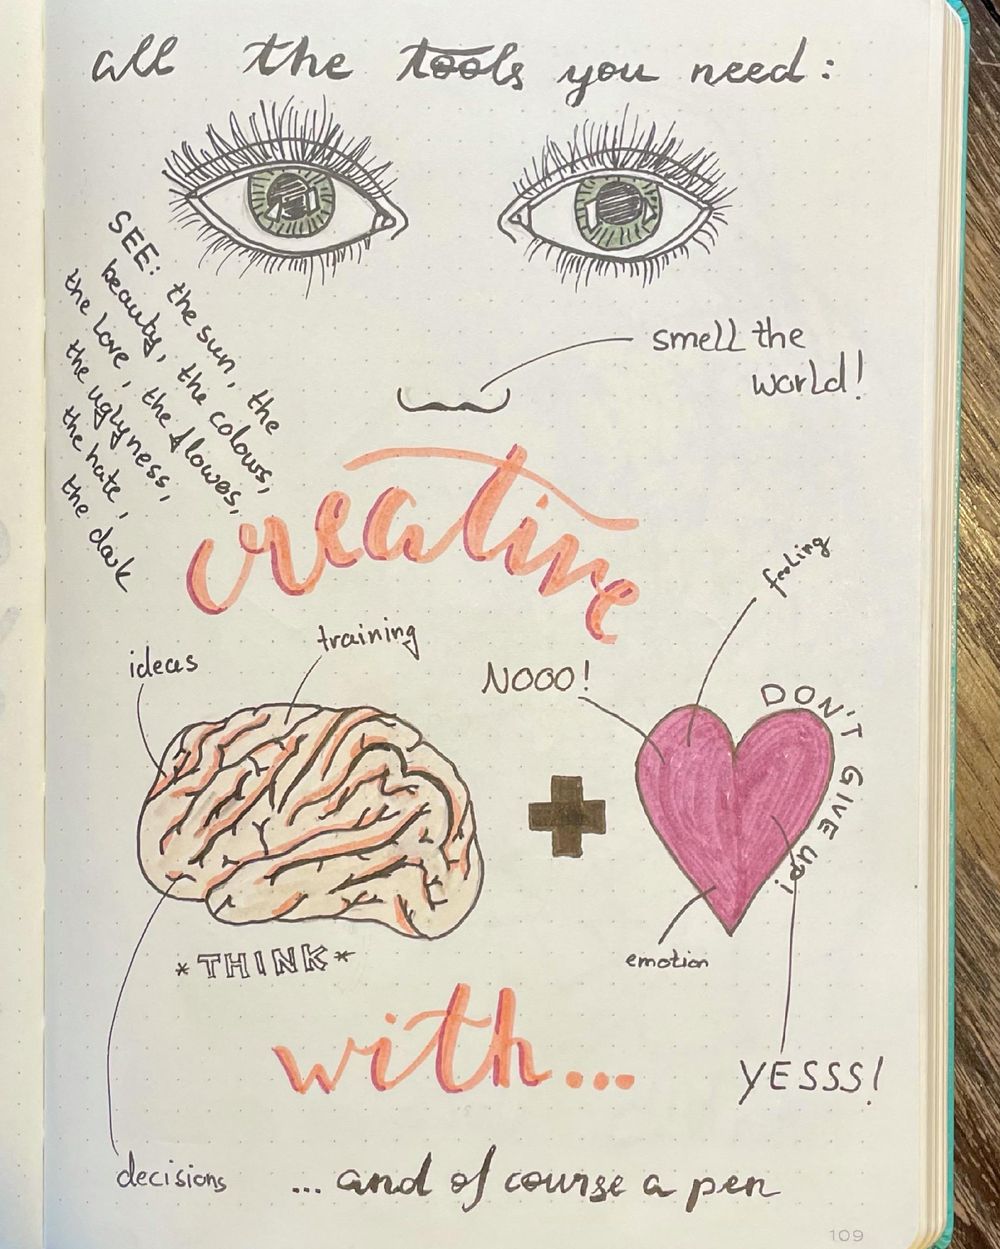 all the tools you need:
SEE: the sun, the
beauty, the colours,
the love, the flowes,
the uglyness,
the hate,
the dark
smell the
world!
creative
ideas
training
NOOO!
feeling
DON'T GIVE up!
*THINK*
emotion
with...
YESSS!
decisions
... and of course a pen
109